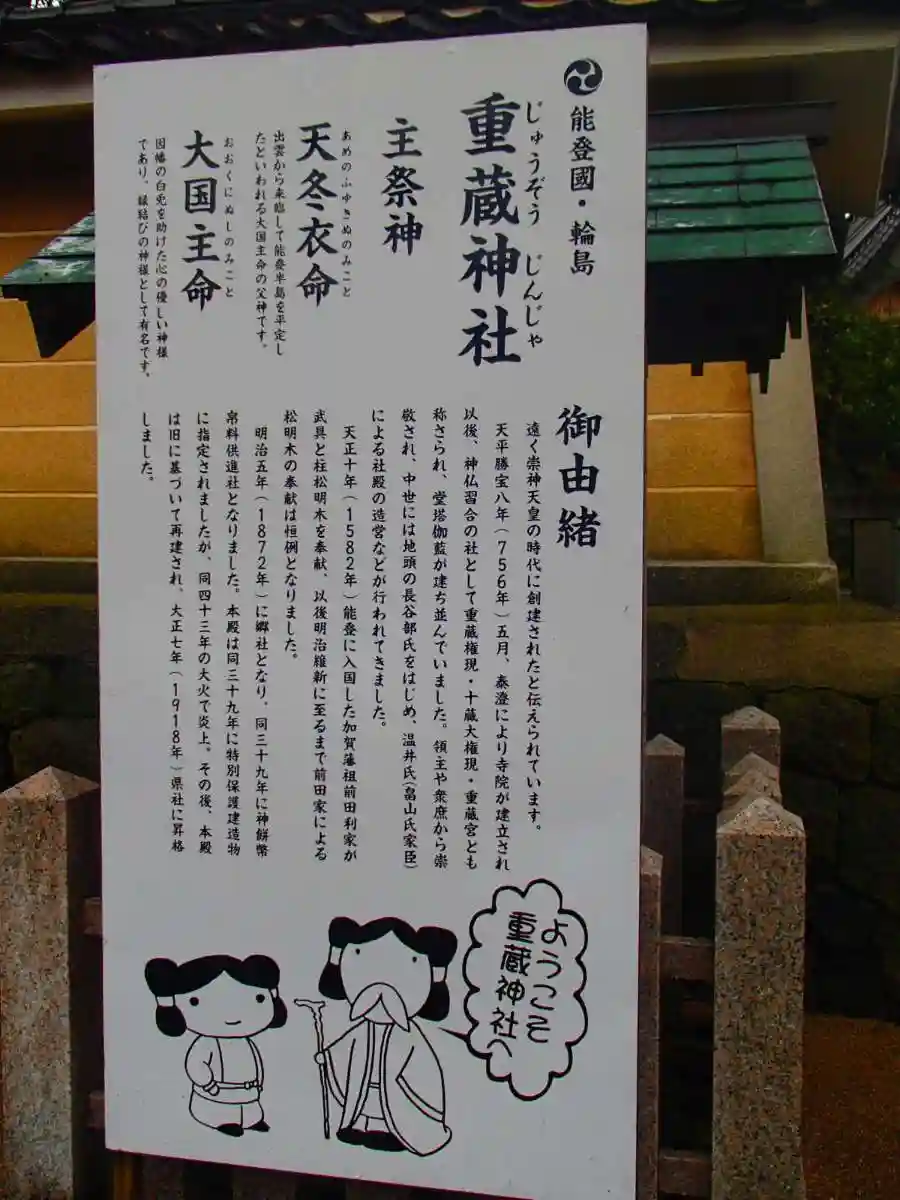 能登國・輪島
じゅうぞう じんじゃ
重蔵神社
主祭神
あめのふゆきぬのみこと
天冬衣命
出雲から来臨して能登半島を平定し
たといわれる大国主命の父神です。
おおくにぬしのみこと
大国主命
因幡の白兎を助けた心の優しい神様
であり、縁結びの神様として有名です。
御由緒
遠く崇神天皇の時代に創建されたと伝えられています。
天平勝宝八年(756年)五月、泰澄により寺院が建立され
以後、神仏習合の社として重蔵権現・十蔵大権現・重蔵宮とも
称さられ、堂塔伽藍が建ち並んでいました。領主や衆庶から崇
敬され、中世には地頭の長谷部氏をはじめ、温井氏(畠山氏家臣)
による社殿の造営などが行われてきました。
天正十年(1582年)能登に入国した加賀藩祖前田利家が
武具と柱松明木を奉献、以後明治維新に至るまで前田家による
松明木の奉献は恒例となりました。
明治五年(1872年)に郷社となり、同三十九年に神餅幣
帛料供進社となりました。本殿は同三十九年に特別保護建造物
に指定されましたが、同四十三年の大火で炎上。その後、本殿
は旧に基づいて再建され、大正七年(1918年)県社に昇格
しました。
ようこそ
重蔵神社へ